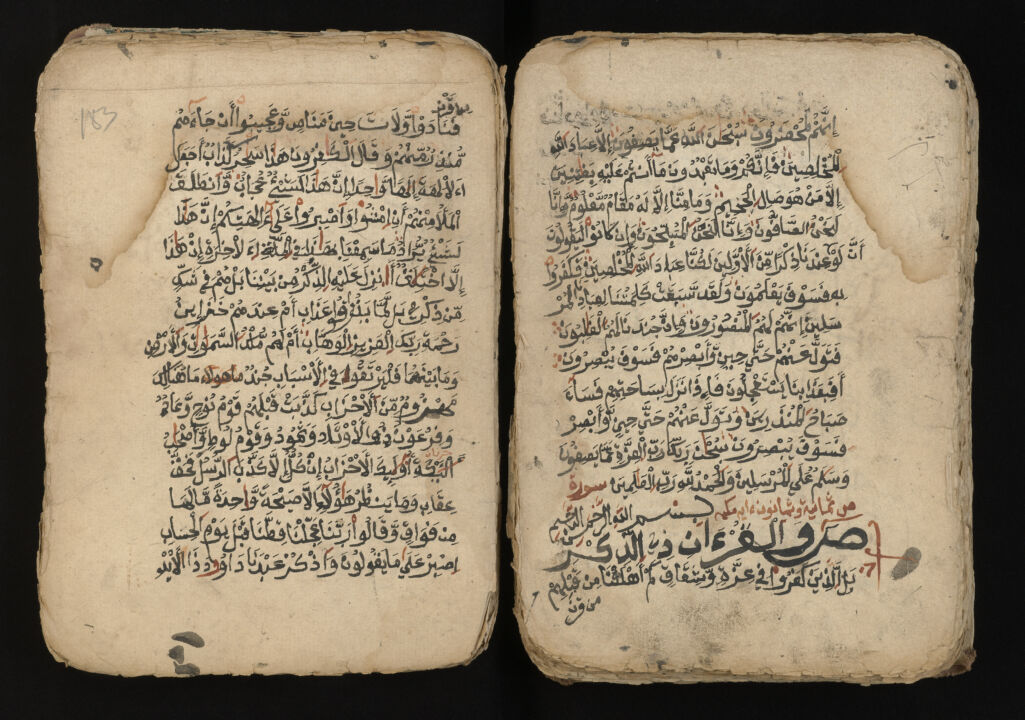 إنهم لمحضرون سبحن الله عما يصفون إلا عباد الله
المخلصين فإنكم وما تعبدون ما أنتم عليه بفتنين
إلا من هو صال الجحيم وما منا إلا له مقام معلوم وإنا
لنحن الصافون وإنا لنحن المسبحون وإن كانوا ليقولون
لو أن عندنا ذكرا من الأولين لكنا عباد الله المخلصين فكفروا
به فسوف يعلمون ولقد سبقت كلمتنا لعبادنا المر
سلين إنهم لهم المنصورون وإن جندنا لهم الغلبون
فتول عنهم حتى حين وأبصرهم فسوف يبصرون
أفبعذابنا يستعجلون فإذا نزل بساحتهم فساء
صباح المنذرين وتول عنهم حتى حين وأبصر
فسوف يبصرون سبحن ربك رب العزة عما يصفون
وسلم على المرسلين والحمد لله رب العلمين سورة
ص ثمانية وثمانون ءاية مكية بسم الله الرحمن الرحيم
ص والقرءان ذي الذكر
بل الذين كفروا في عزة وشقاق كم أهلكنا من قبلهم
من قرن
من قرن
فنادوا ولات حين مناص وعجبوا أن جاءهم
منذر منهم وقال الكفرون هذا سحر كذاب أجعل
الألهة إلها واحدا إن هذا لشيء عجاب وانطلق
الملأ منهم أن امشوا واصبروا على ءالهتكم إن هذا
لشيء يراد ما سمعنا بهذا في الملة الأخرة إن هذا
إلا اختلق أأنزل عليه الذكر من بيننا بل هم في شك
من ذكري بل لما يذوقوا عذاب أم عندهم خزائن
رحمة ربك العزيز الوهاب أم لهم ملك السموت والأرض
وما بينهما فليرتقوا في الأسباب جند ما هنالك
مهزوم من الأحزاب كذبت قبلهم قوم نوح وعاد
وفرعون ذو الأوتاد وثمود وقوم لوط وأصحب
ليكة أولئك الأحزاب إن كل إلا كذب الرسل فحق
عقاب وما ينظر هؤلاء إلا صيحة واحدة ما لها
من فواق وقالوا ربنا عجل لنا قطنا قبل يوم الحساب
اصبر على ما يقولون واذكر عبدنا داوود ذا الأيد